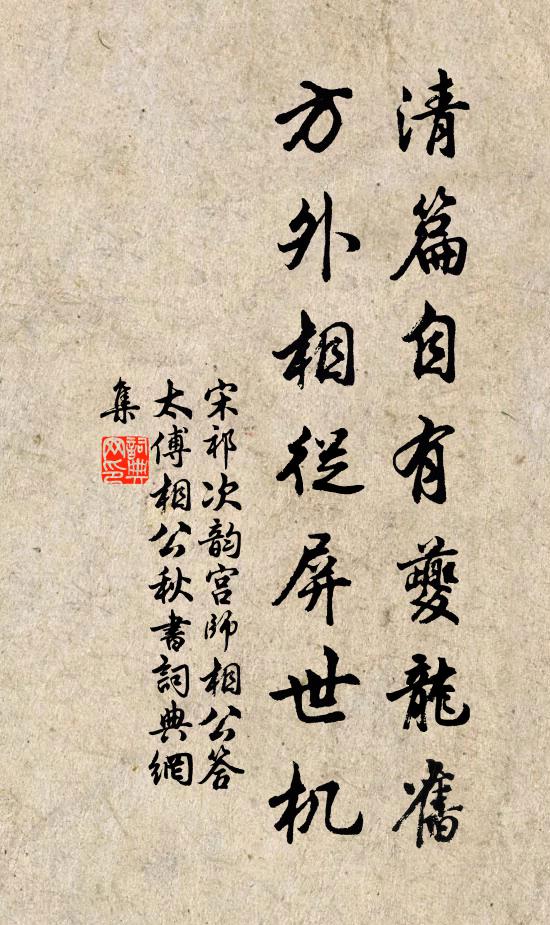 清篇自有夔龍舊
方外相從屏世机
宋祁次韵宫師相公答
太傅相公秋書詞典網
集
詞典網印